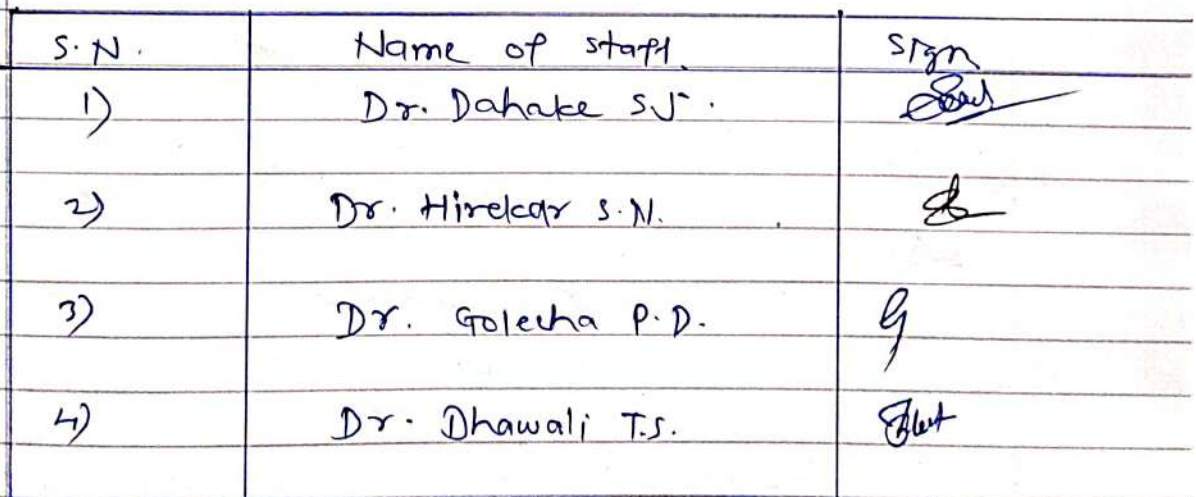 S.N. Name of staff. Sign
1) Dr. Dahake S.J.
2) Dr. Hirekar S.N.
3) Dr. Golecha P.D.
4) Dr. Dhawali T.S.